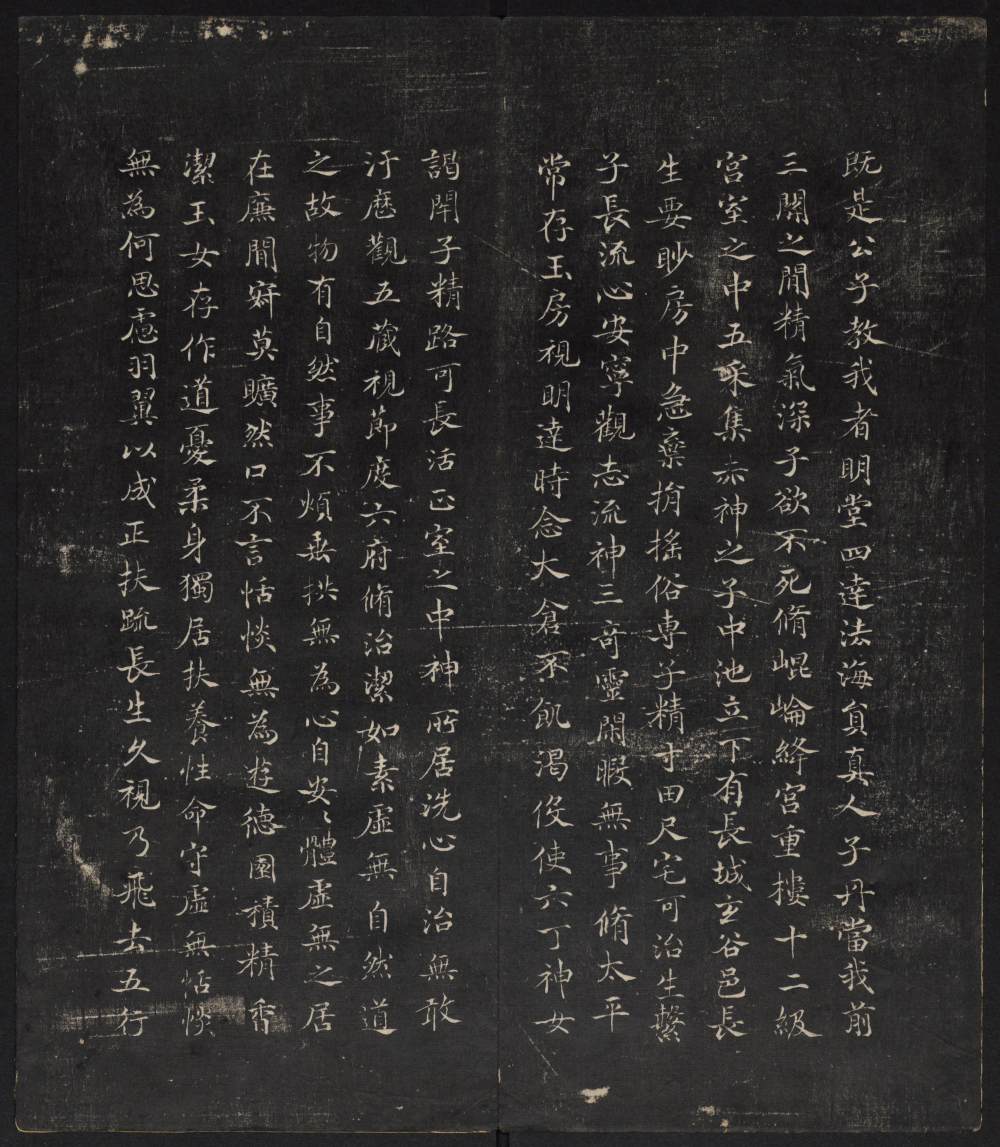 既是公子教我者明堂四達法海負真人子丹當我前
三關之間精氣深子欲不死脩崐崘絳宮重樓十二級
宮室之中五采集赤神之子中池立下有長城玄谷邑長
生要眇房中急棄捐搖俗專子精寸田尺宅可治生繫
子長流心安寧觀志流神三奇靈閑暇無事脩太平
常存玉房視明達時念大倉不飢渴役使六丁神女
謁閉子精路可長活正室之中神所居洗心自治無敢
汙歷觀五藏視節度六府脩治潔如素虛無自然道
之故物有自然事不煩垂拱無為心自安〻體虛無之居
在廉間寂莫曠然口不言恬惔無為遊德園積精香
潔玉女存作道憂柔身獨居扶養性命守虛無恬惔
無為何思慮羽翼以成正扶疏長生久視乃飛去五行